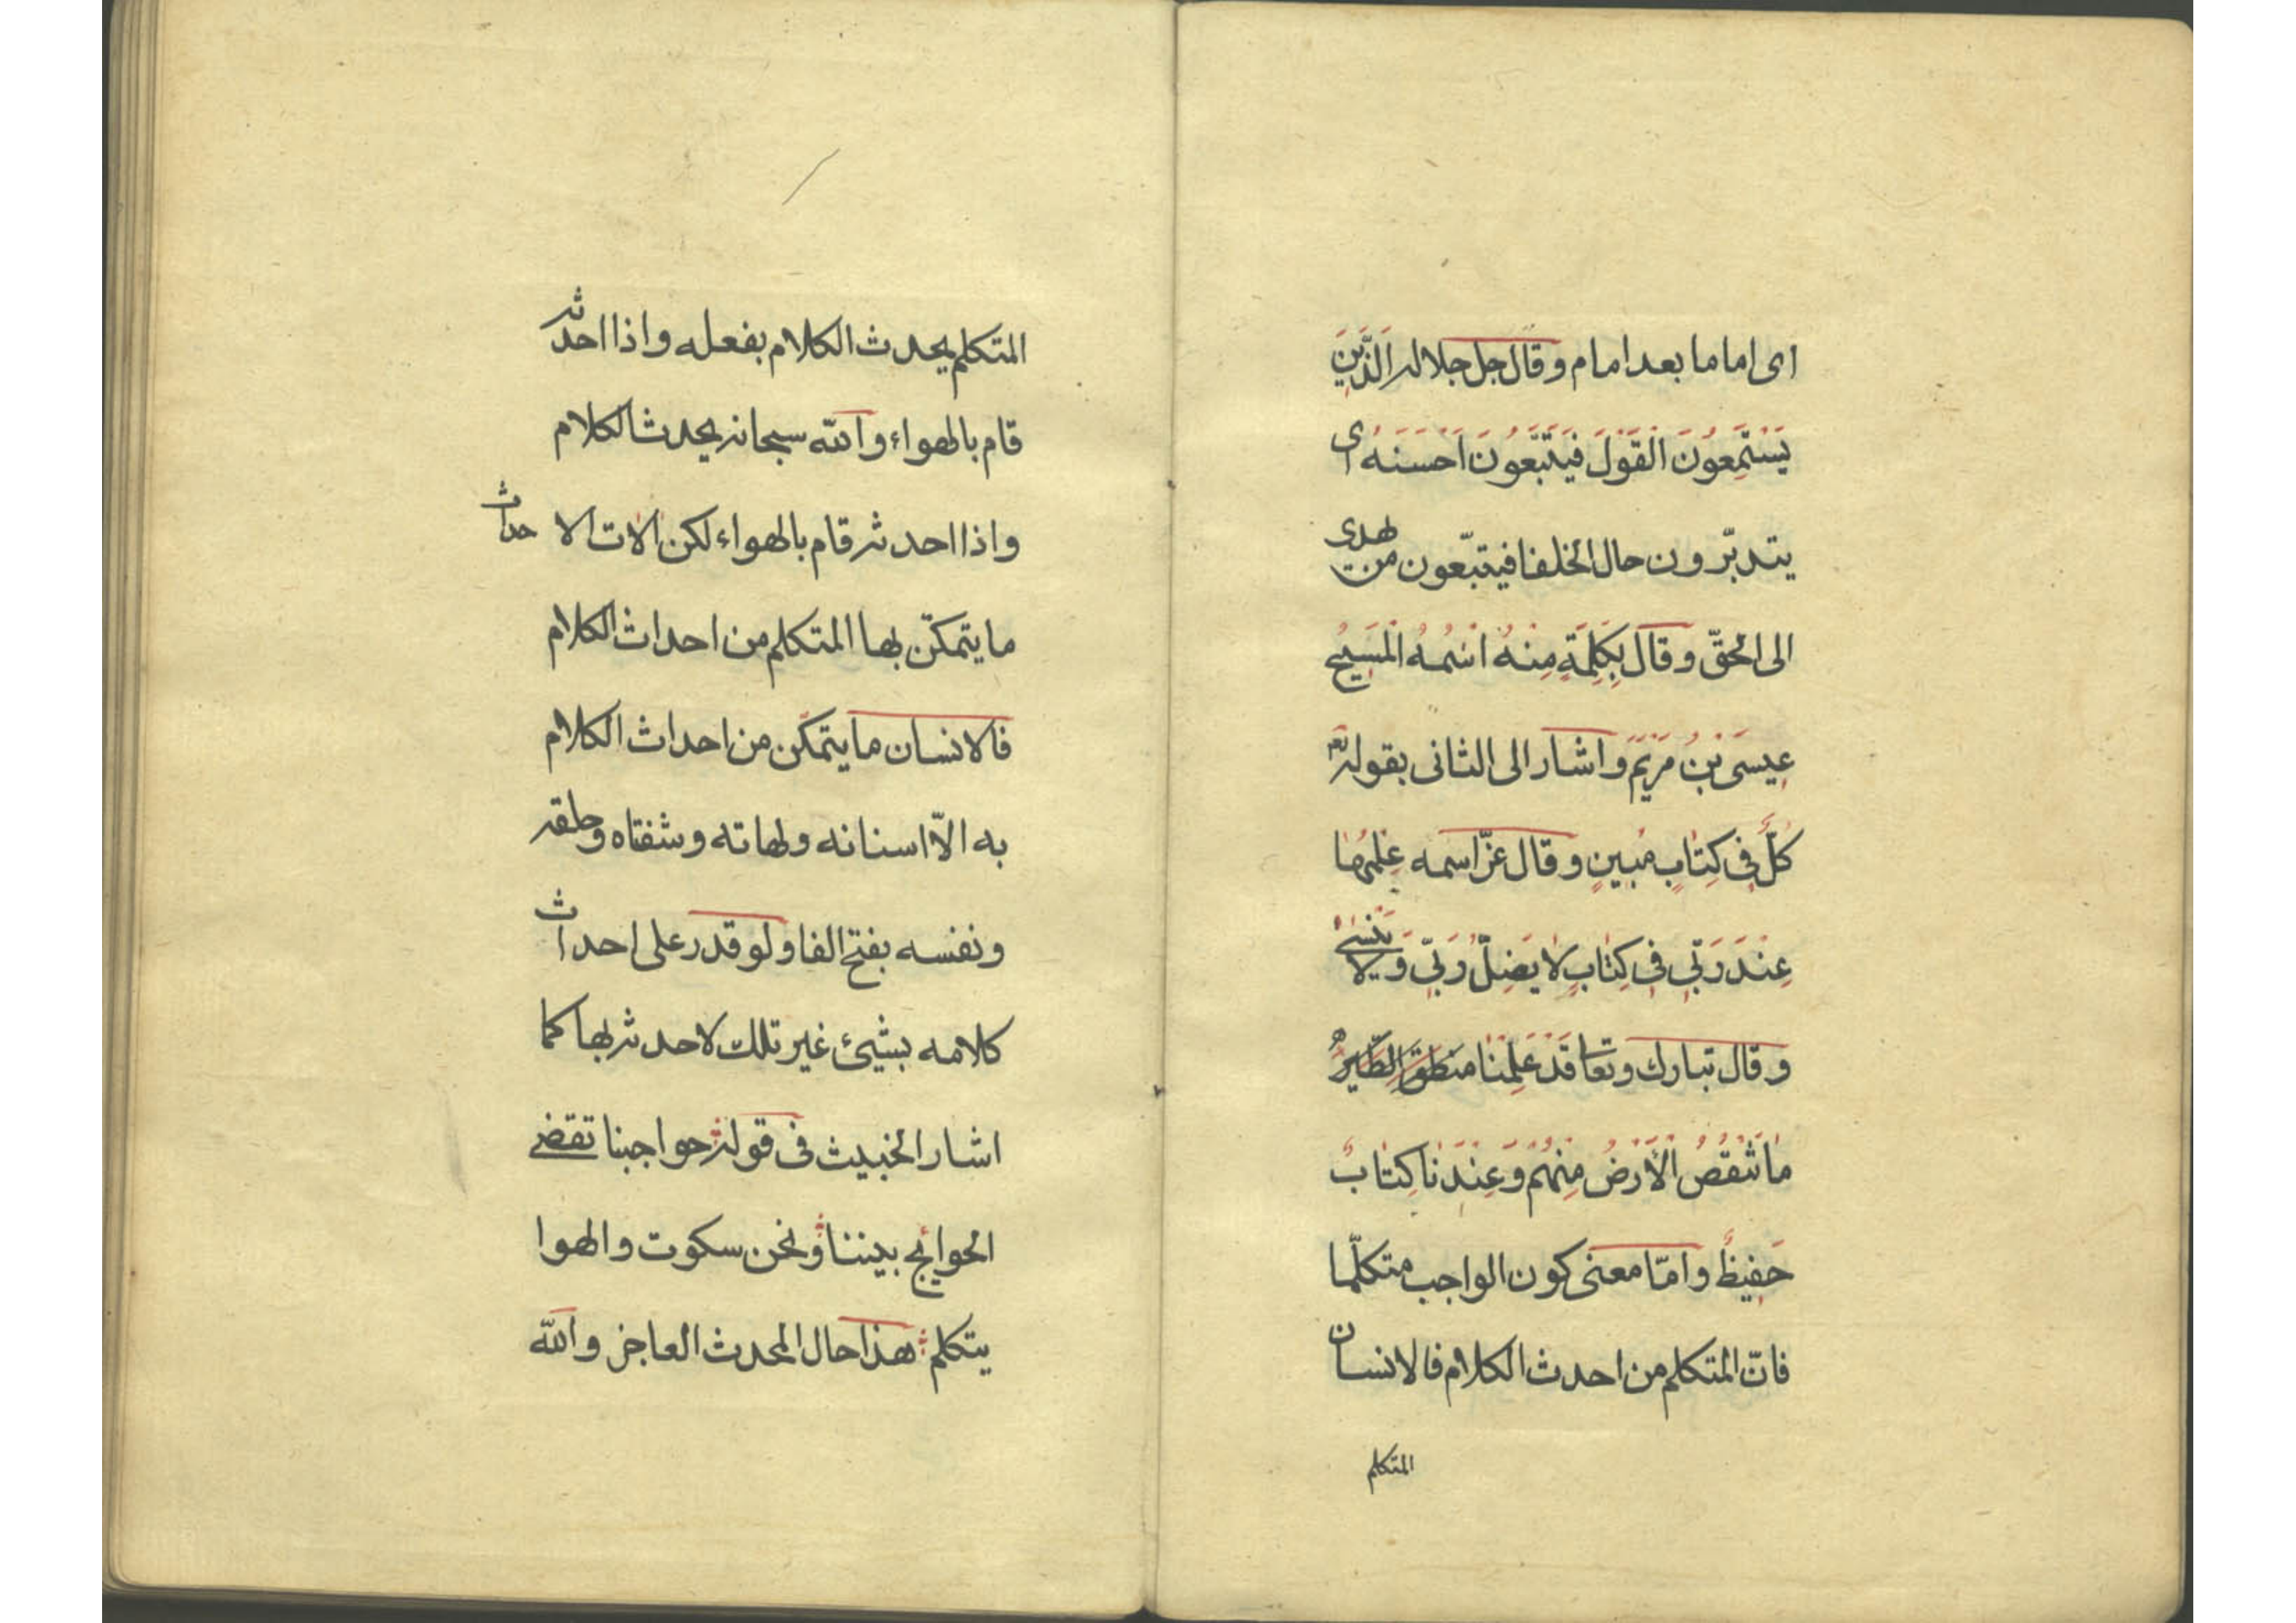 اى اماما بعد امام وقال جل جلاله الَّذينَ
يَسْتَمِعُونَ الْقَوْلَ فَيَتَّبِعُونَ اَحْسَنَهُ اى
يتدبّرون حال الخلفا فيتبّعون من يهدى
الى الحقّ وقال بِكَلِمَةٍ مِنْهُ اسْمُهُ الْمَسيحُ
عيسَى بْنُ مَرْيَمَ واشار الى الثانى بقوله تعه
كُلٌّ فى كِتابٍ مُبينٍ وقال عزّ اسمه عِلْمُها
عِنْدَ رَبّى فى كِتابٍ لا يَضِلُّ رَبّى وَلا يَنْسى
وقال تبارك وتعا قَدْ عَلِمْنا منطق الطير
ما تَنْقُصُ الْاَرْضُ مِنْهُمْ وَعِنْدَنا كِتابٌ
حَفيظٌ وامّا معنى كون الواجب متكلّما
فانّ المتكلم من احدث الكلام فالانسان
المتكلم
المتكلم يحدث الكلام بفعله واذا احدثه
قام بالهواء والله سبحانه يحدث الكلام
واذا احدثه قام بالهواء لكن الات الاحداث
ما يتمكّن بها المتكلم من احداث الكلام
فالانسان ما يتمكّن من احداث الكلام
به الّا اسنانه ولهاته وشفتاه وحلقه
ونفسه بفتح الفا ولو قدر على احداث
كلامه بشيئ غير تلك لاحدثه بها كما
اشار الخبيث فى قوله حواجبنا تقضى
الحوايج بيننا ونحن سكوت والهوا
يتكلم هذا حال المحدث العاجز والله